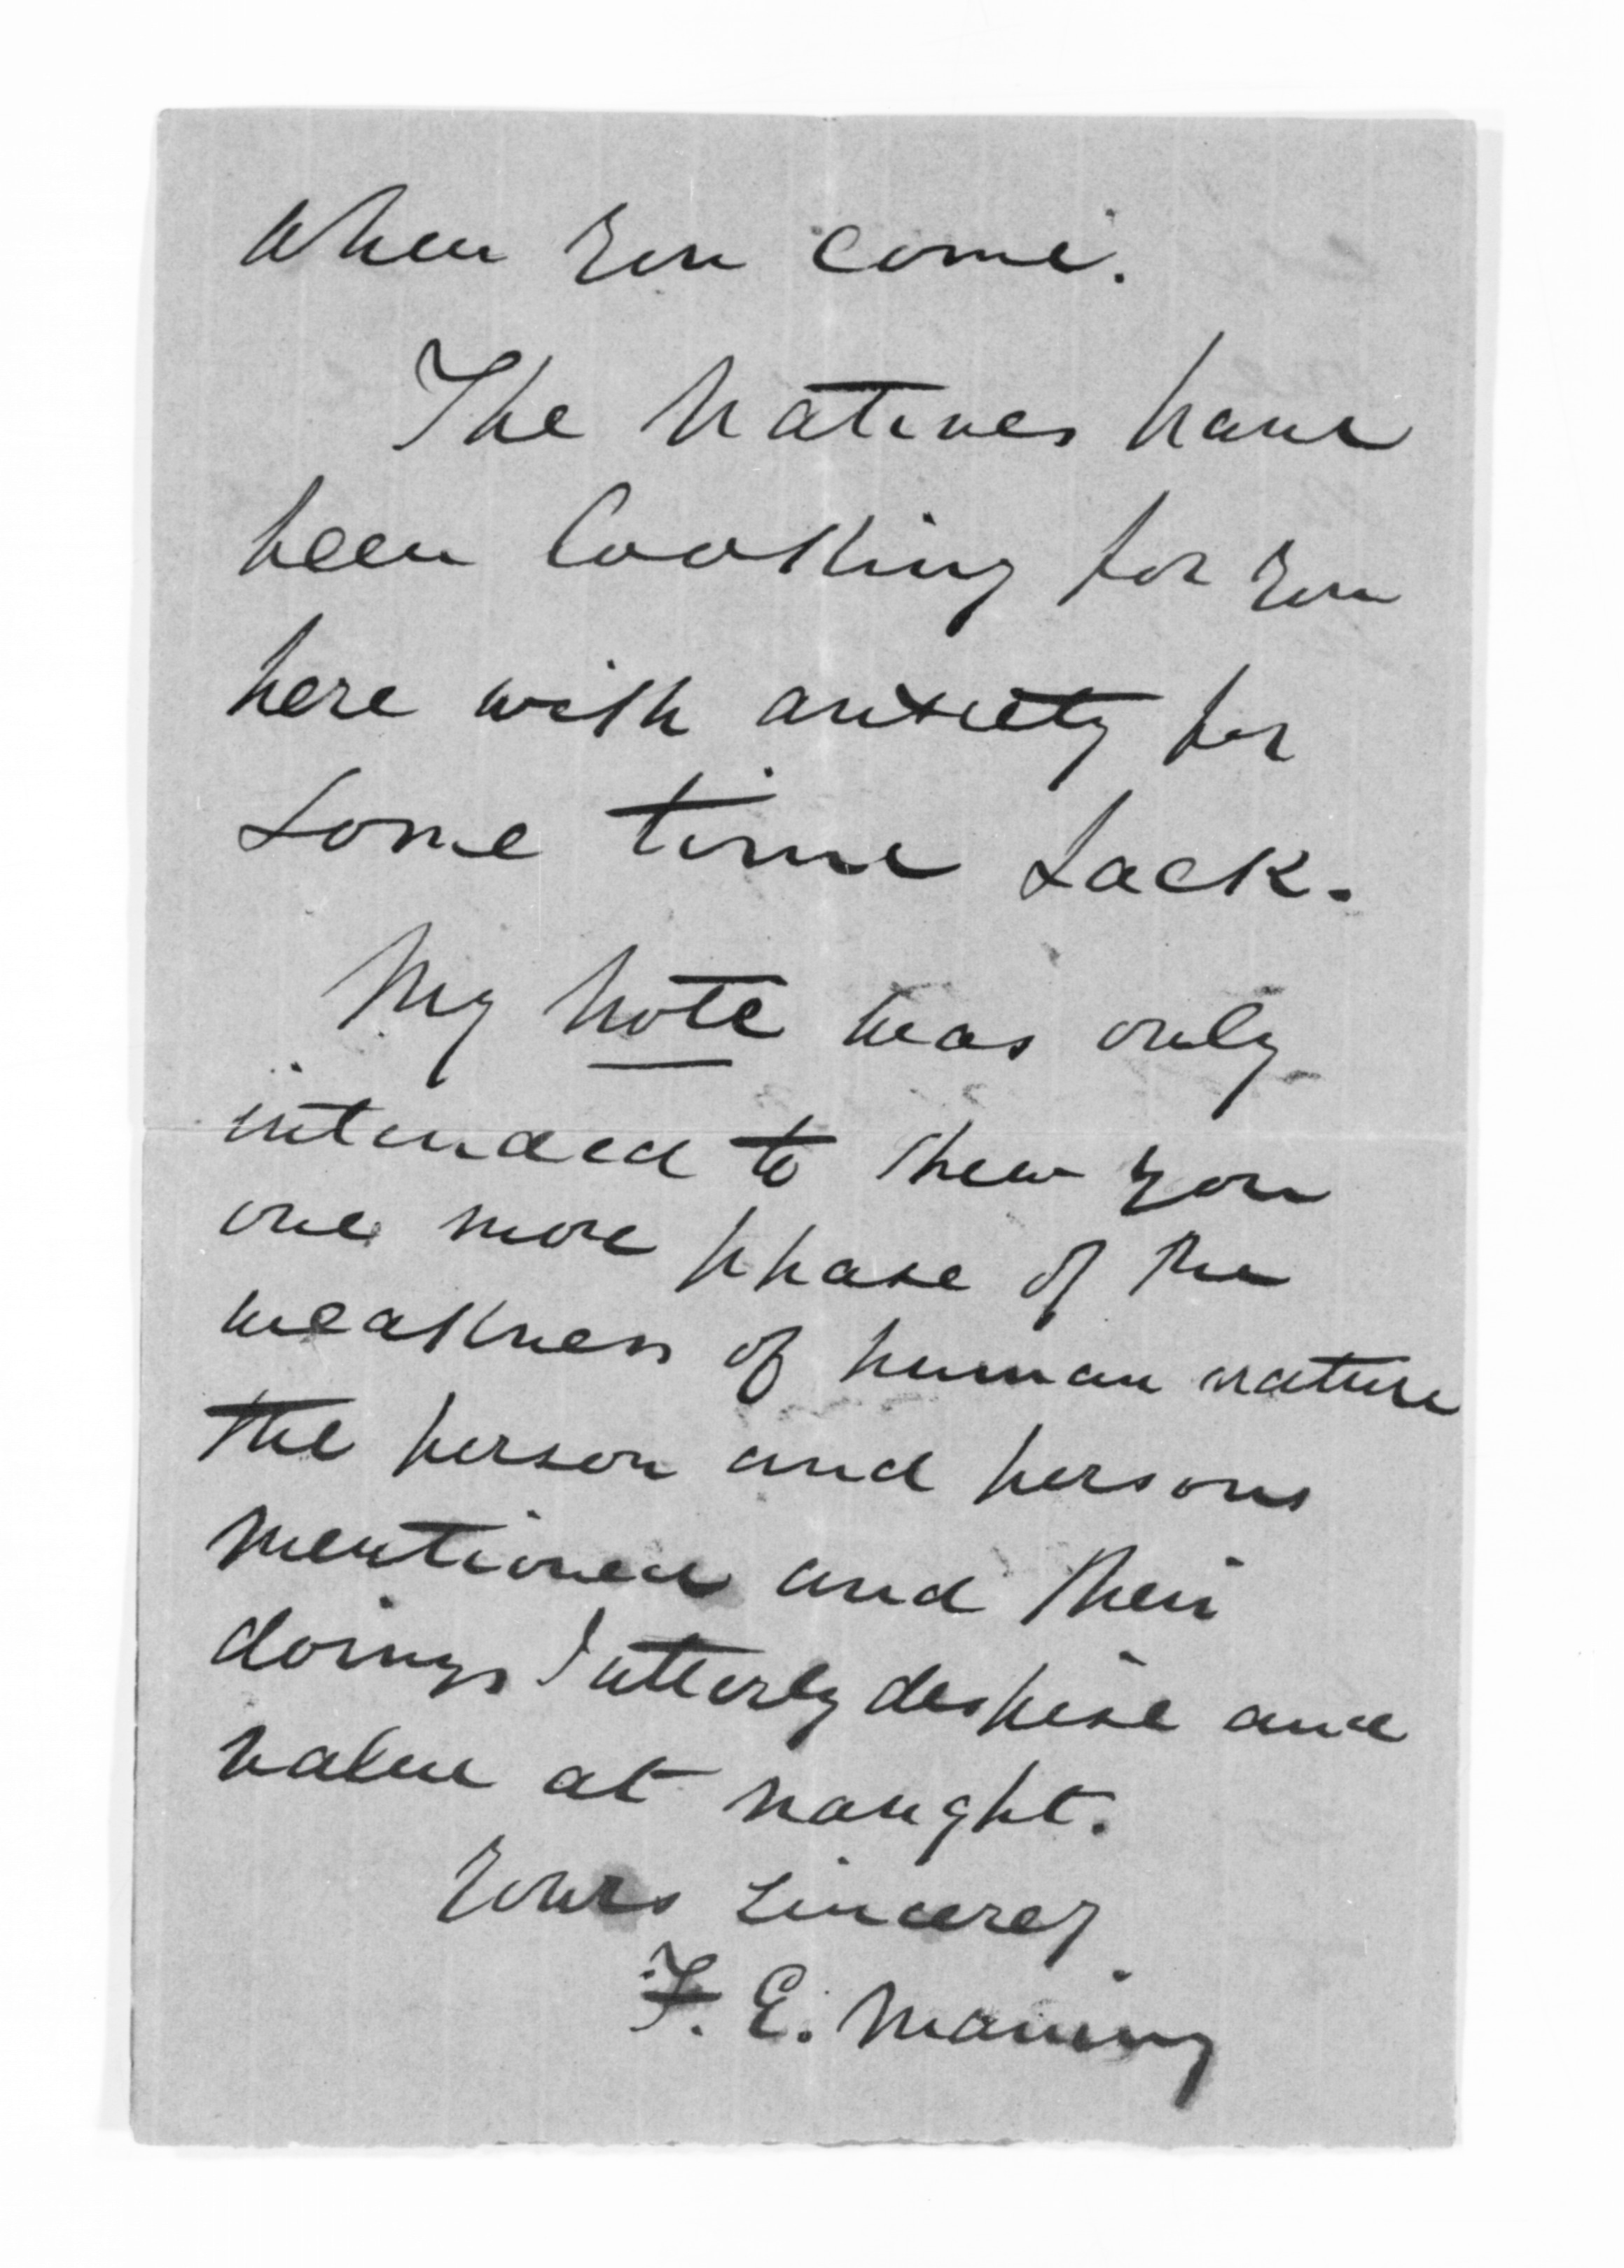 when you come.
The Natives have
been looking for you
here with anxiety for
some time back.
My note was only
intended to shew you
one more phase of the
weakness of human nature
the person and persons
mentioned and their
doings I utterly despise and
value at naught.
Yours sincerely
F. E. Maning